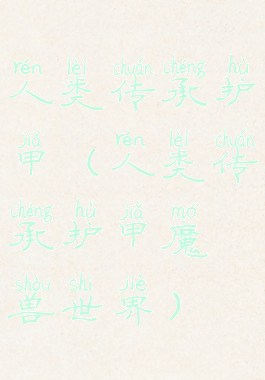 rén lèi chuán chéng hù
人类传承护
jiǎ rén lèi chuán
甲（人类传
chéng hù jiǎ mó
承护甲魔
shòu shì jiè
兽世界）